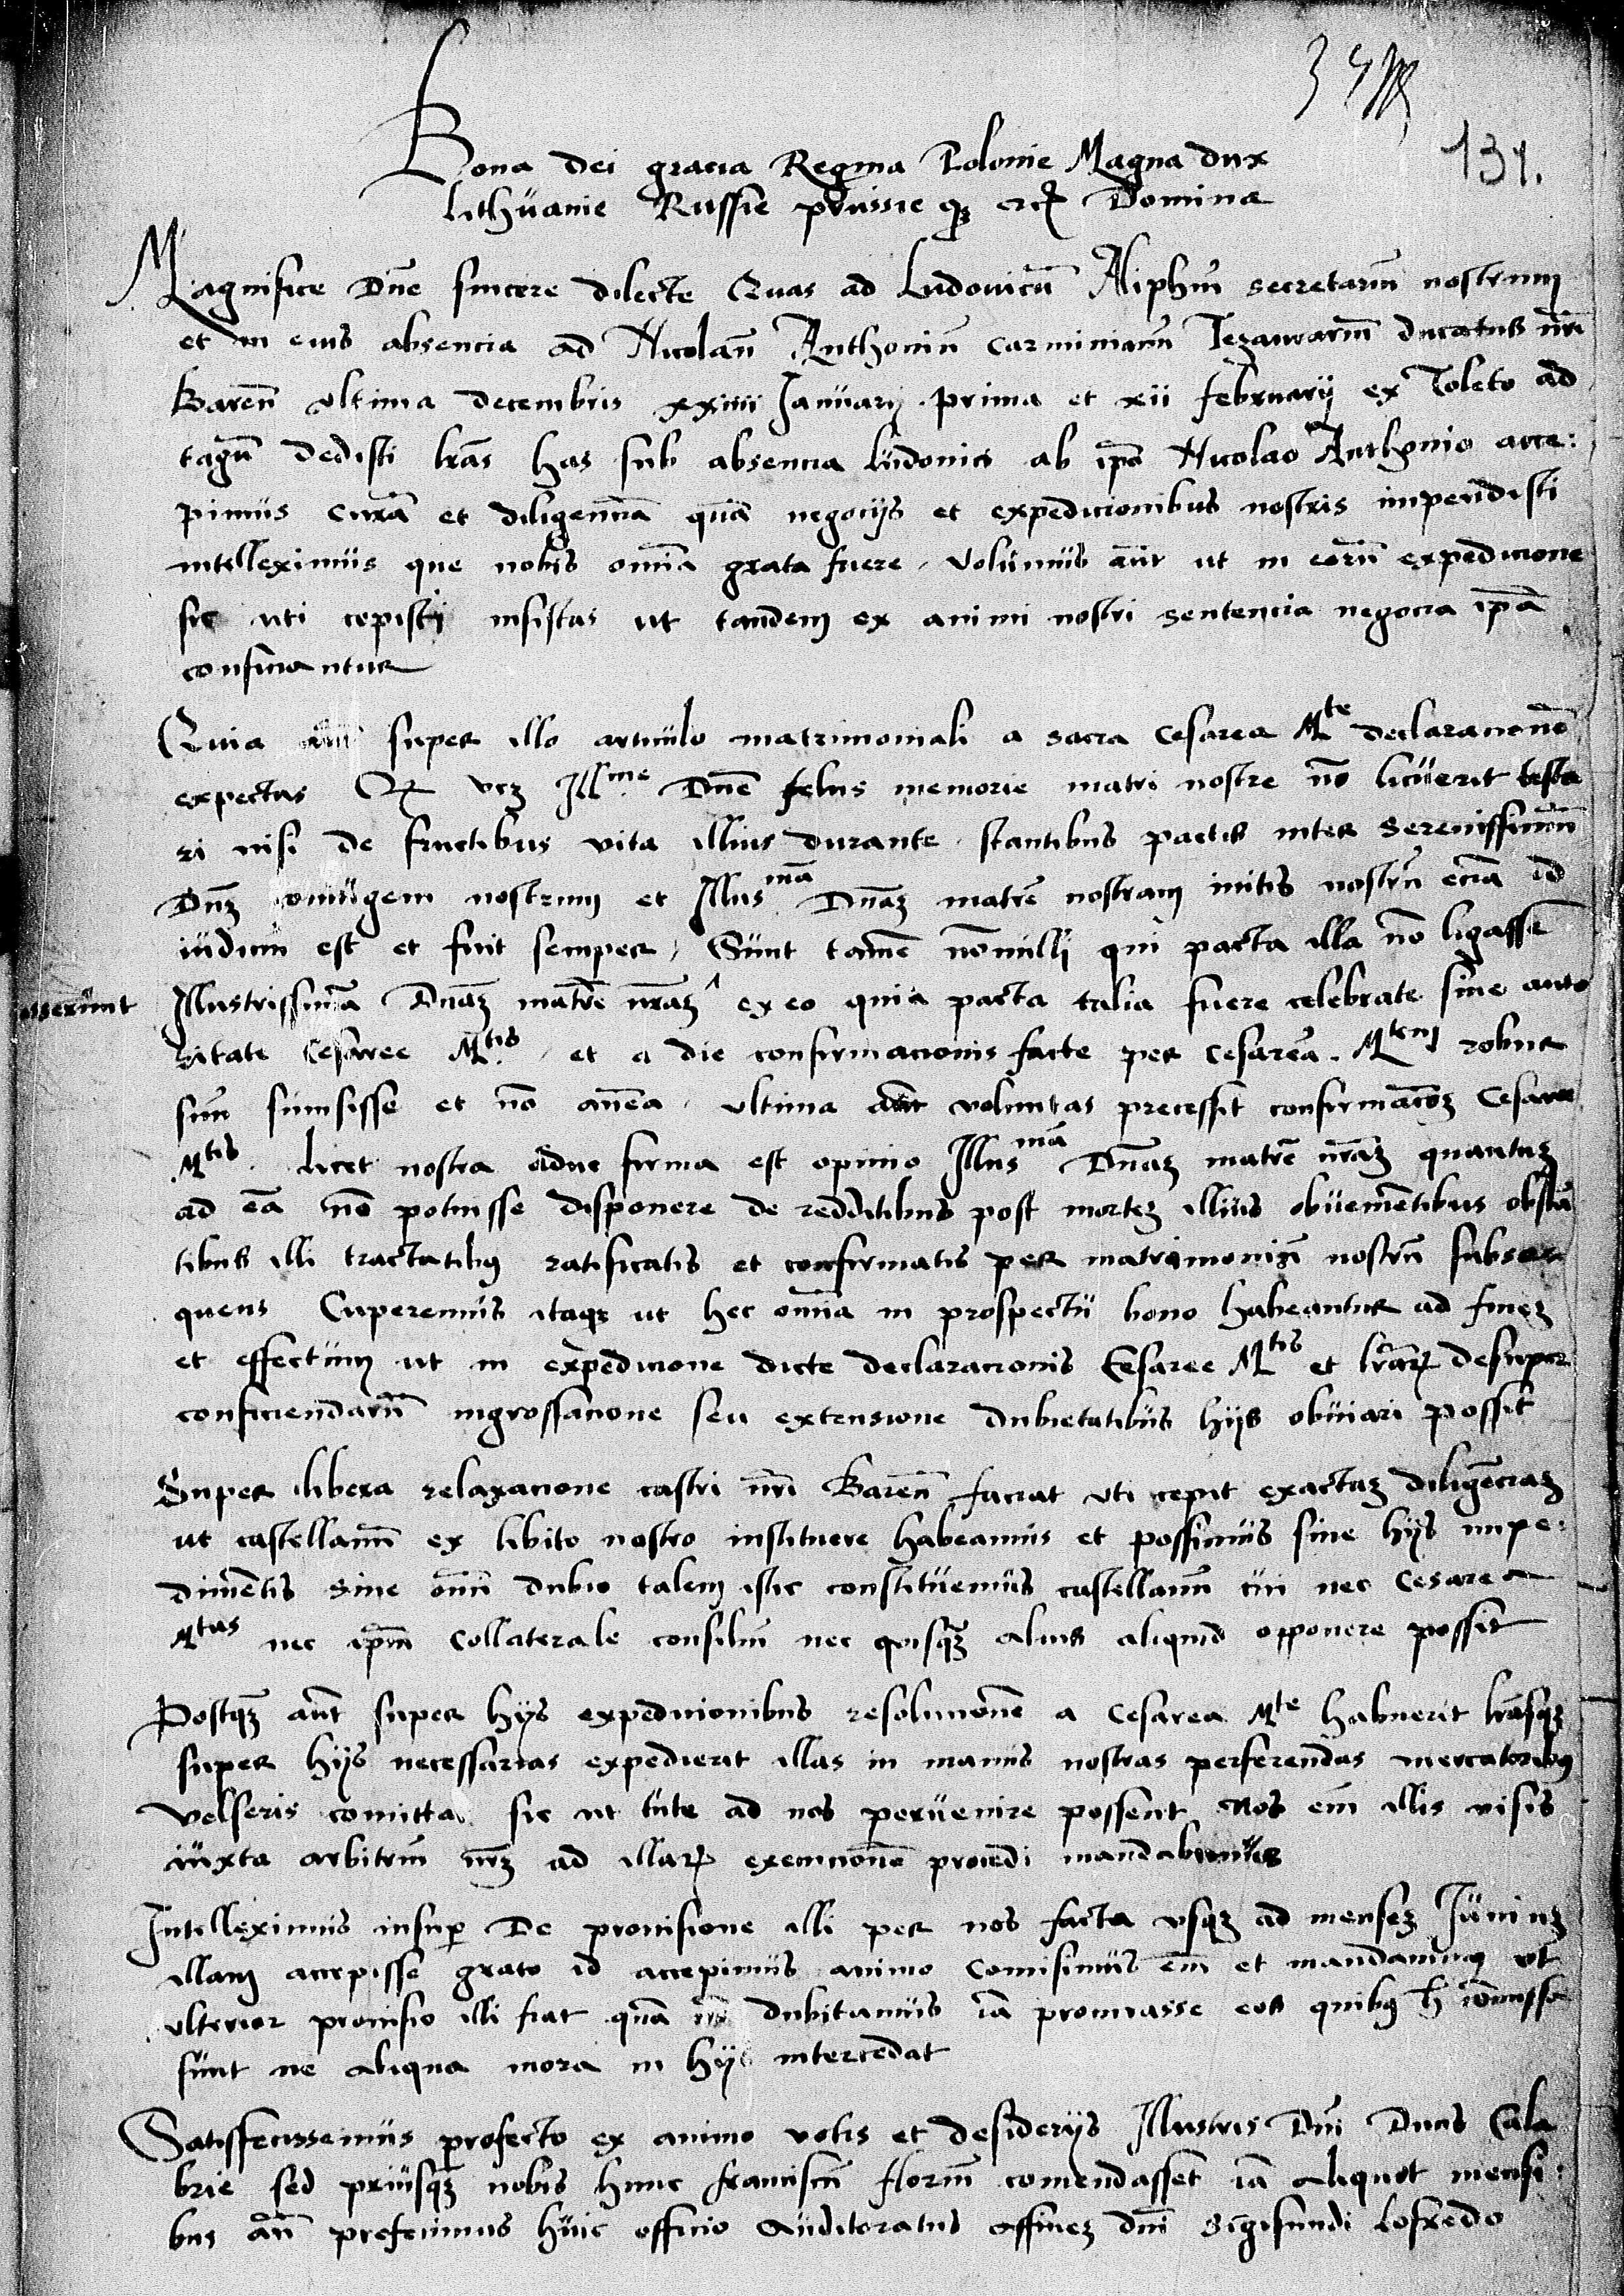 131.
Bona dei gracia Regina Polonie Magna dux
Lithuanie Russie prussie qz etc Domina
Magnifice Dne sincere dilecte Quas ad Ludovicu Aliphiu secretariu nostrum
et in eius absencia ad Nicolau Anthoniu carminianu Tezaurariu ducatus nri
Baren ultima decembris xxiiii Januarij prima et xii februarij ex Toleto ad
tagu dedisti lras has sub absencia Ludovici ab ipo Nicolao Anthonio acce:
pimus cura et diligencia qua negocijs et expedicionibus nostris impendisti
intelleximus que nobis omia grata fuere, volumus aut ut in eoru expedicione
sic uti cepisti insistas ut tandem ex animi nostri sentencia negocia ipa
conficiantur
Quia aut super illo articulo matrimoniali a sacra Cesarea Mte declaracione
expectas Q vcz Illme Dne felicis memorie matri nostre no licuerit testa
ri nisi de fructibus vita illius durante, stantibus pactis inter Serenissimu
Dnz coniugem nostrum et Illusma Dnaz matre nostram initis nostru ecia id
iudicium est et fuit semper, Sunt tame nonulli qui pacta illa no ligasse
asserunt Illustrissima Dnaz matre nraz ex eo quia pacta talia fuere celebrate sine auto
ritate Cesaree Mtis, et a die confirmacionis facte per Cesarea Mtem robur
suu sumsisse et no antea, ultima aut voluntas precessit confirmacoez Cesaree
Mtis. Licet nostra aduc firma est opinio Illusma Dnaz matre nraz quantuz
ad ea no potuisse disponere de redditibus post mortez illius obuementibus obstan
tibus illi tractatibus ratificatis et confirmatis per matrimoniu nostru subse
quens Cuperemus itaqz ut hec omia in prospectu bono habeantur ad finez
et effectum ut in expedicione dicte declaracionis Cesaree Mtis et lrar desuper
conficiendaru ingrossacione seu extensione dubietatibus hijs obuiari possit
Super libera relaxacione castri nri Baren faciat uti cepit exactaz diligenciaz
ut castellanu ex libito nostro instituere habeamus et possimus sine hijs impe:
dimentis Sine omi dubio talem istic constituemus castellanu cui nec Cesarea
Mtas nec ipm Collaterale consiliu nec quisqz alius aliquid opponere possit
Postqz aut super hijs expedicionibus resolucione a Cesarea Mte habuerit lrasqz
super hijs necessarias expedierit illas in manus nostras perferendas mercatoribus
Velseris comitta sic ut tute ad nos peruenire possent Nos em illis visis
iuxta arbitriu nrz ad illar execucione procedi mandabimus
Intelleximus insup De prouisione illi per nos facta usqz ad mensez Juniuz
illam accepisse grato id accepimus animo Comisimus em et mandauimus ut
ulterior prouisio illi fiat qua no dubitamus ia procurasse eos quibus h comissa
sunt ne aliqua mora in hijs intercedat
Satisfecissemus profecto ex animo votis et desiderijs Illustris Dni Ducis Cala
brie sed priusqz nobis hunc franciscu floriu comendasset ia aliquot mensi:
bus an prefecimus huic officio Auditoratus affinez dni Sigismundi Lofredo